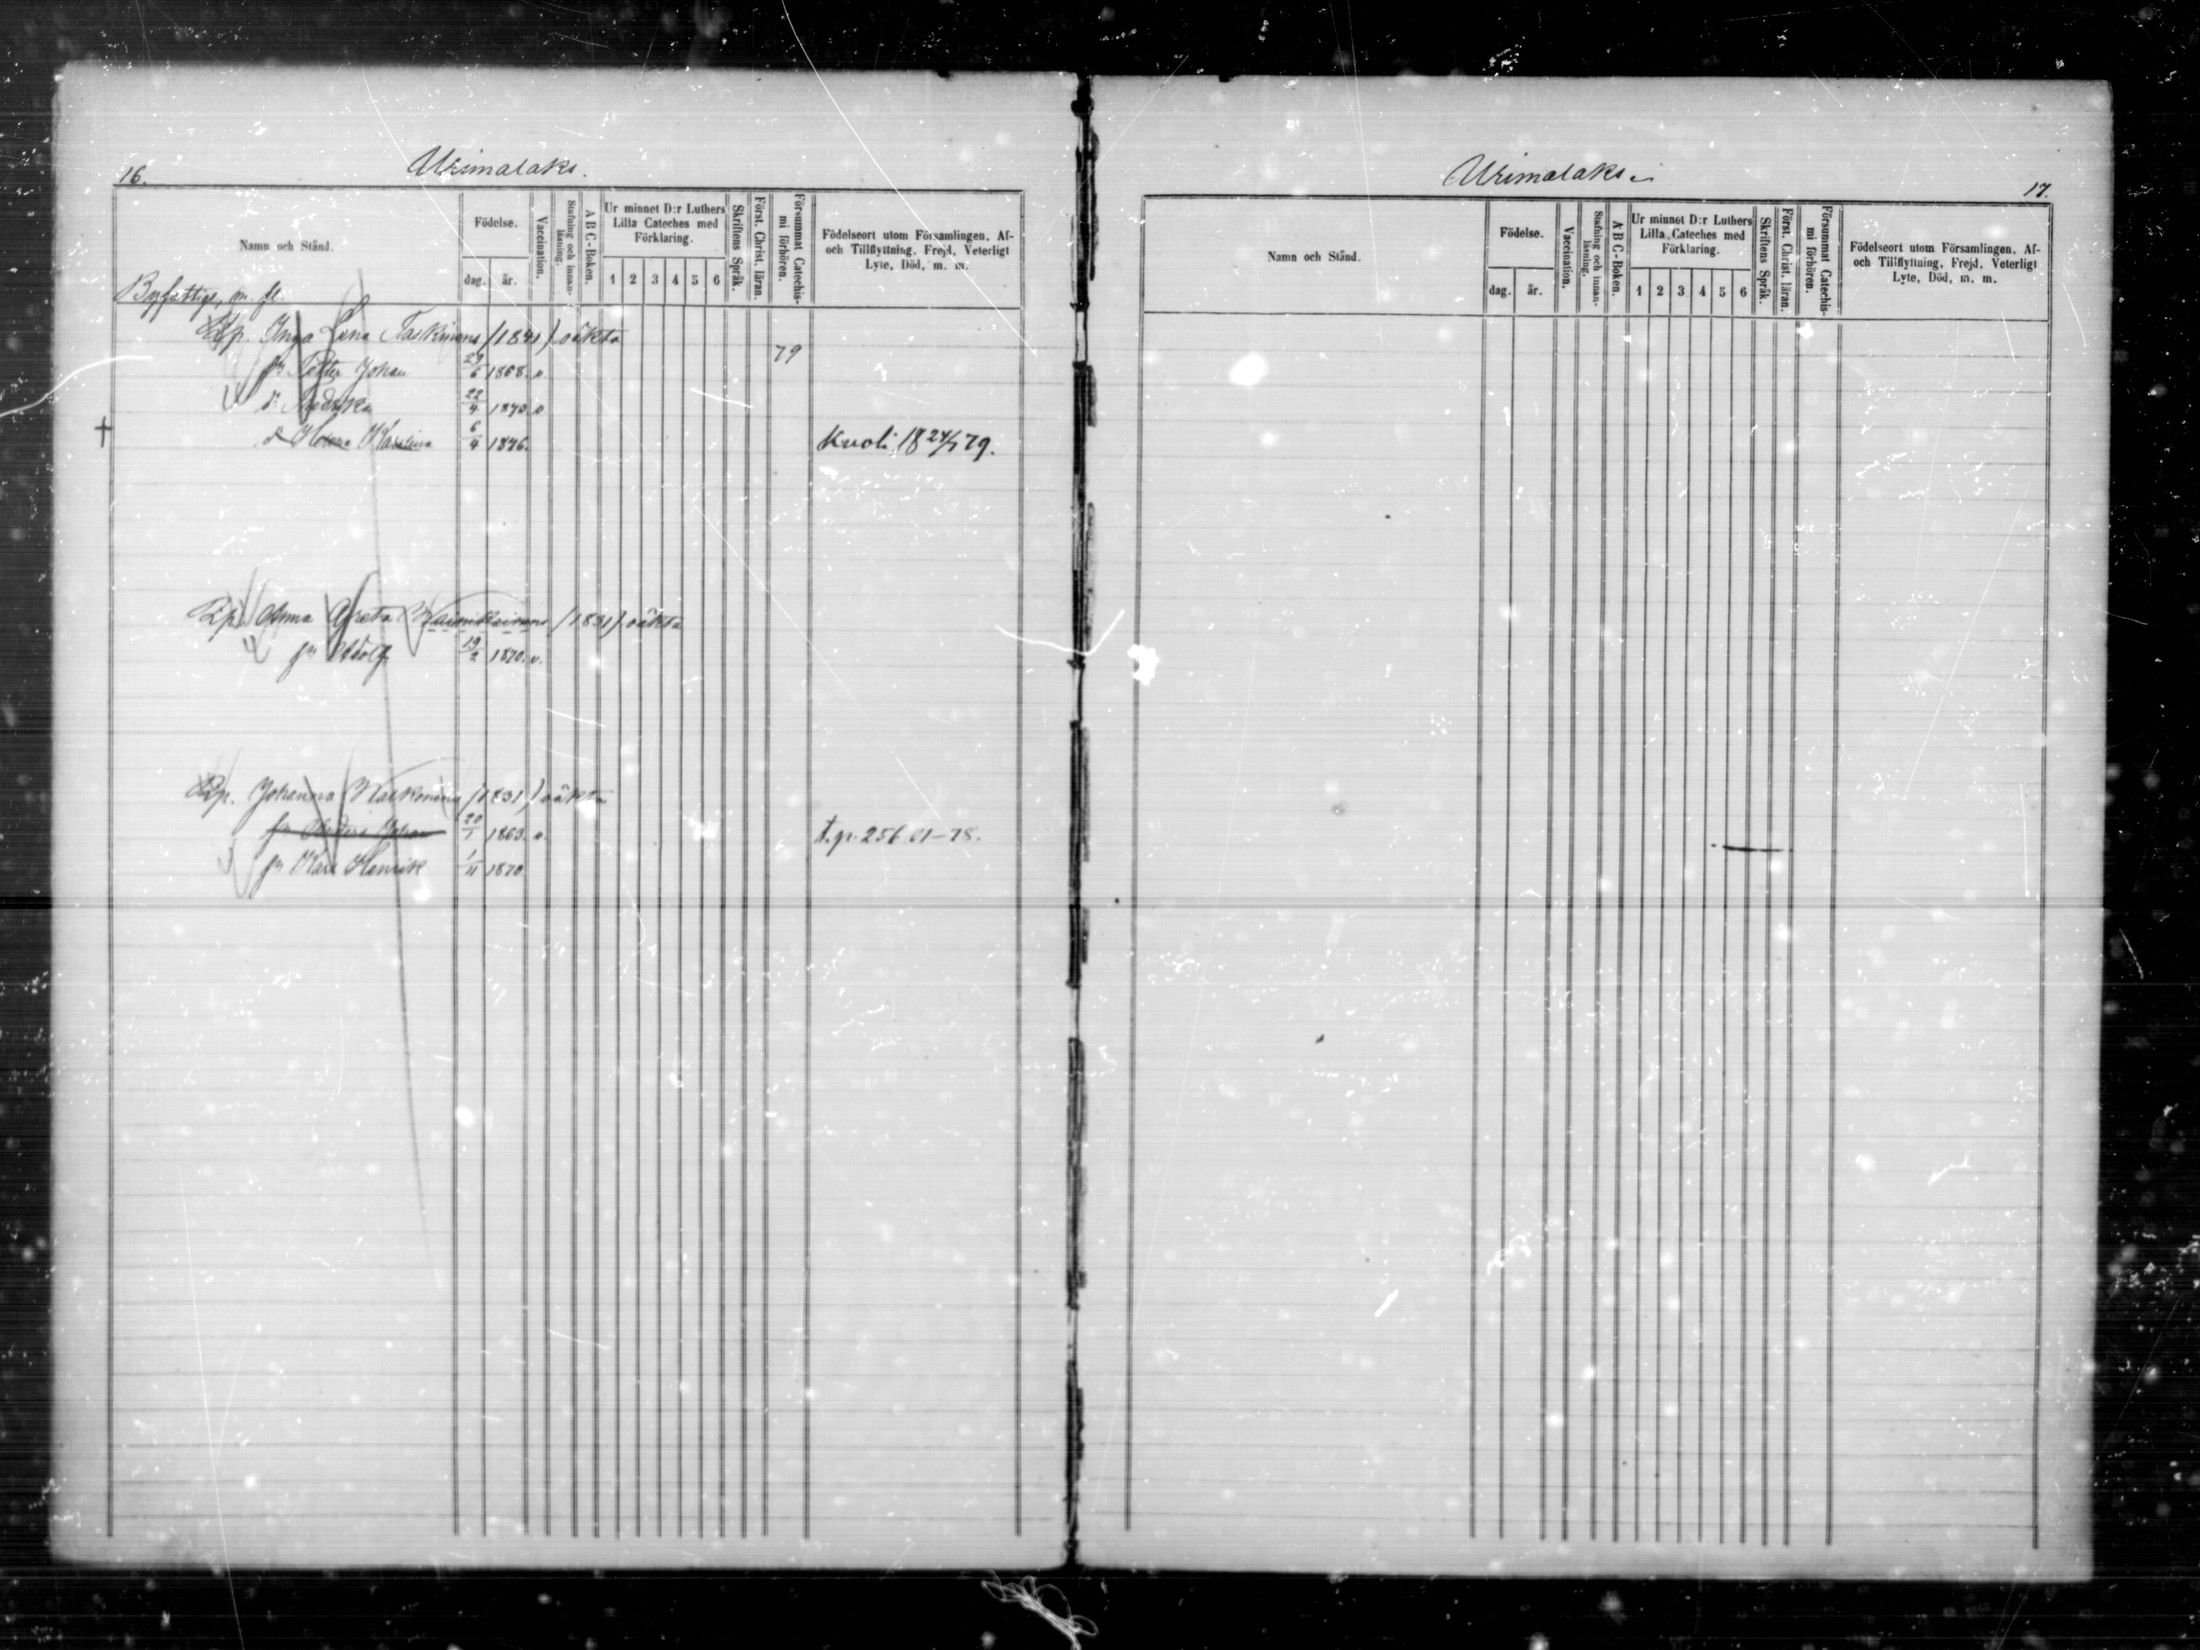 16.
Urimalaks.
Namn och Stånd.
Födelse.
dag. år.
Vaccination.
Stafning och innanläsning.
A B C-Boken.
Ur minnet D:r Luthers
Lilla Cateches med
Förklaring.
1 2 3 4 5 6
Skriftens Språk.
Först. Christ. läran.
Försummat Catechismi förhören.
Födelseort utom Församlingen, Af-
och Tillflyttning, Frejd, Veterligt
Lyte, Död, m. m.
Byfattige, m. fl.
Lp. Inga Lena Taskinens (1841) oäkta
79
sn Petter Johan 29/6 1868. v
dr Fredrika 22/4 1870. v
† dr Helena Karolina 6/4 1876. Kuoli 18 24/7 79.
Lp. Anna Greta Wainikainens (1831) oäkta
sn Adolf 19/2 1870. v.
Lp. Johanna (1831) oäkta
sn Anders Johan 20/1 1863. v. t. gr. 256 01-78.
sn Karl Henrik 1/11 1870
Urimalaks.
17.
Namn och Stånd.
Födelse.
dag. år.
Vaccination.
Stafning och innanläsning.
A B C-Boken.
Ur minnet D:r Luthers
Lilla Cateches med
Förklaring.
1 2 3 4 5 6
Skriftens Språk.
Först. Christ. läran.
Försummat Catechismi förhören.
Födelseort utom Församlingen, Af-
och Tillflyttning, Frejd, Veterligt
Lyte, Död, m. m.